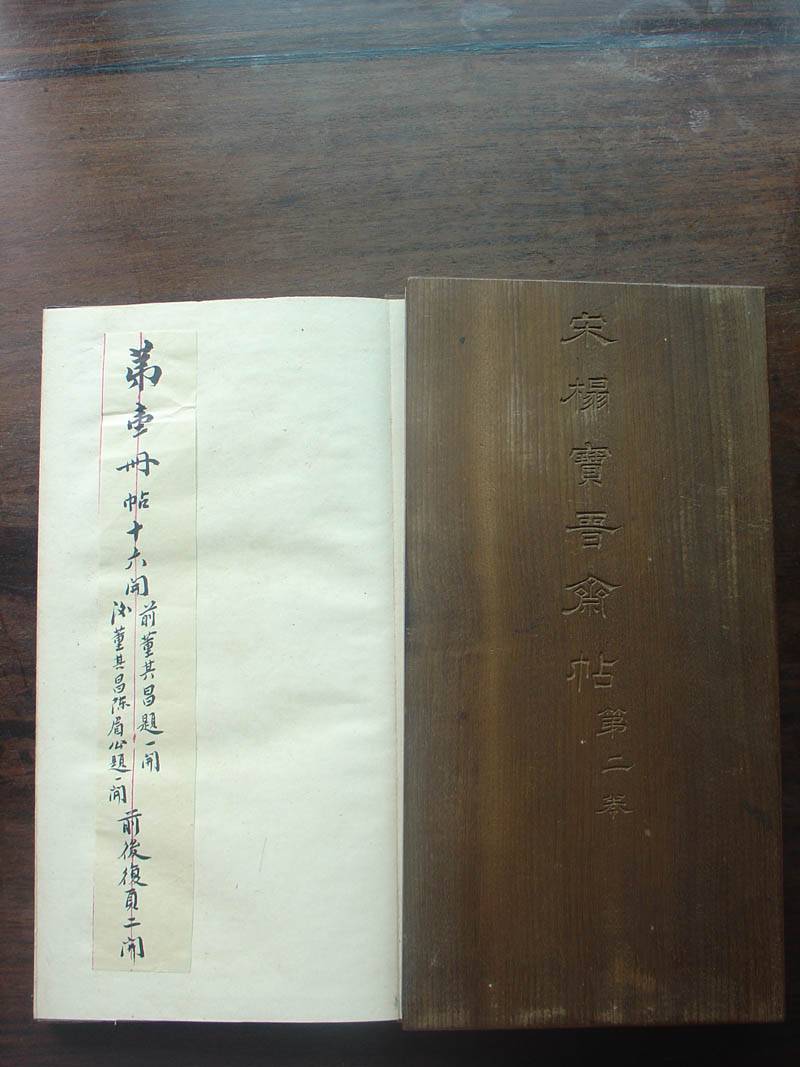 宋榻寶晉齋帖第二卷
第壹冊帖十六開
前董其昌題一開
後董其昌陳眉公題一開
前後復頁二開